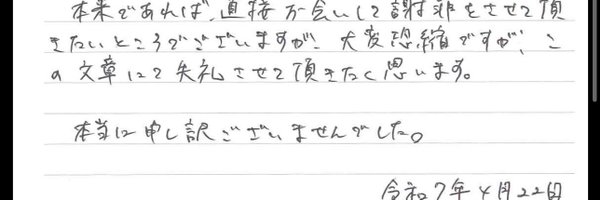 本来であれば、直接お会いして謝罪をさせて頂
きたいところでございますが、大変恐縮ですが、こ
の文章にて失礼させて頂きたく思います。
本当に申し訳ございませんでした。
令和7年4月22日